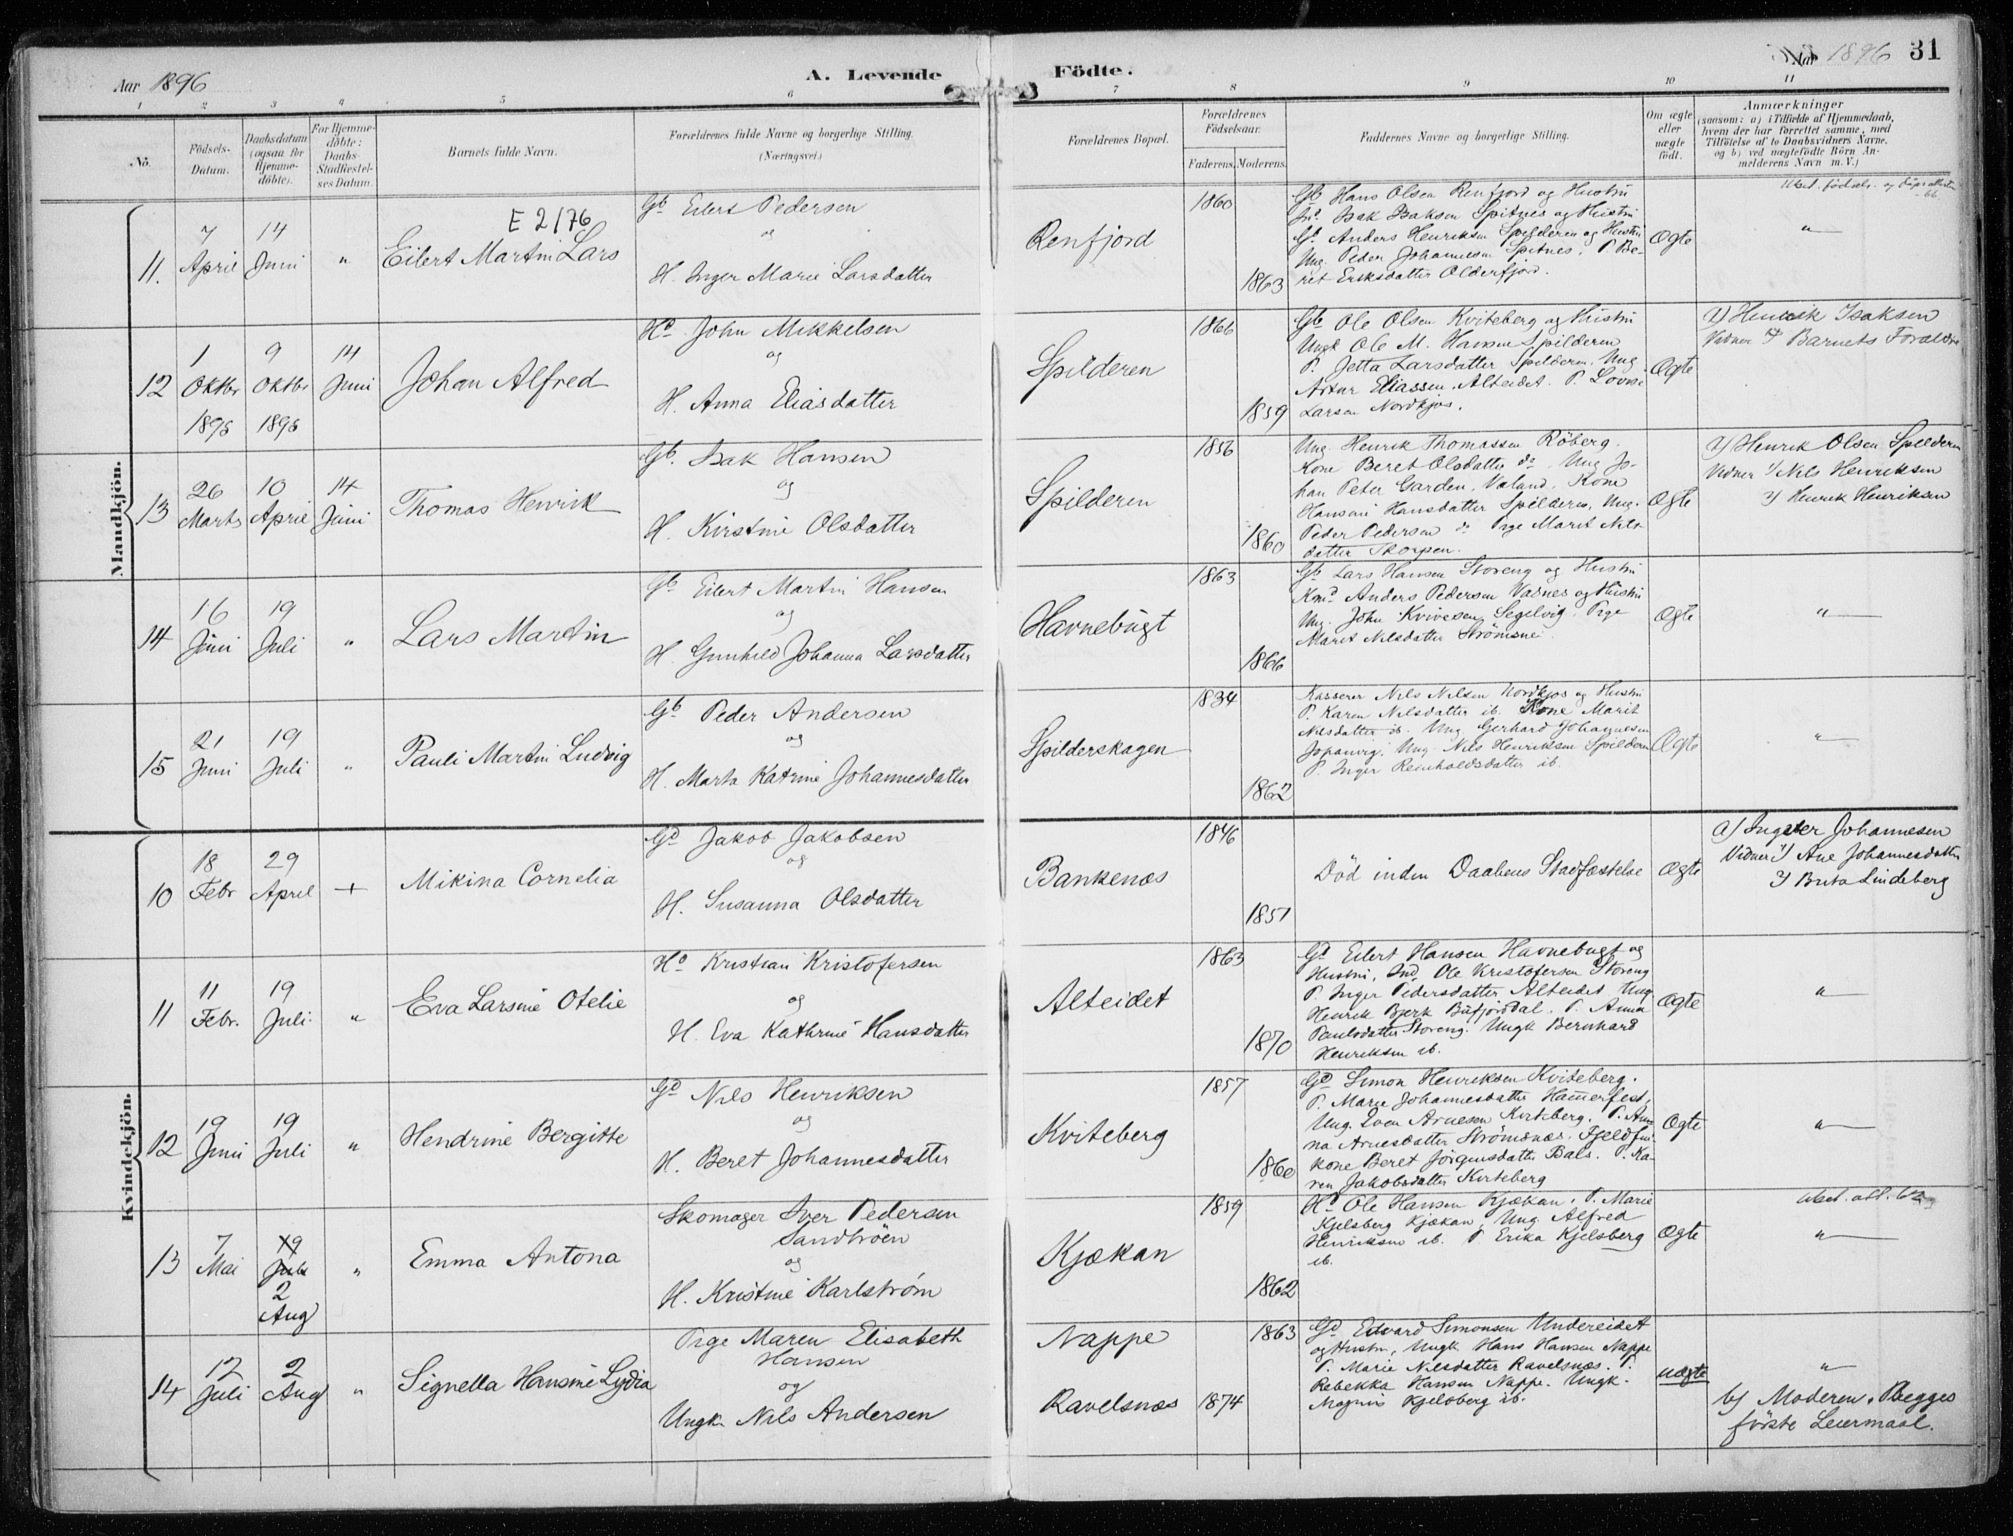 Aar 1896
A. Levende Födte.
Aar 1896
31
1 2 3 4 5 6 7 8 9 10 11
No.
Födsels-Datum.
Daabsdatum (ogsaa for Hjemme-döbte).
For Hjemme-döbte: Daabs-Stadfæstel-ses Datum.
Barnets fulde Navn.
Forældrenes fulde Navne og borgerlige Stilling. (Næringsvei.)
Forældrenes Bopæl.
Forældrenes Födselsaar.
Faderens. Moderens.
Faddernes Navne og borgerlige Stilling.
Om ægte eller uægte födt.
Anmærkninger
(saasom: a) i Tilfælde af Hjemmedaab, hvem der har forrettet samme, med Tilföielse af to Daabsvidners Navne, og b) ved uægtefödte Börn An-melderens Navn m. V.)
Mandkjön.
11.
7 April
14 Juni
"
E 2/76
Eilert Martin Lars
Gb Eilert Pedersen
og
H. Inger Marie Larsdatter
Renfjord
1860
1863
Gb Hans Olsen Renfjord og Hustru
Isak Isaksen Spitnes og Hustru
Anders Henriksen Spilderen og Hustru
Ung. Peder Johannesen Spitnes. P. Be-
ret Eriksdatter Olderfjord.
Ægte
"
12
1 Oktbr 1895
9 Oktbr 1895
14 Juni
Johan Alfred
Hd John Mikkelsen
og
H. Anna Eliasdatter
Spilderen
1866
1859
Gb Ole Olsen Kviteberg og Hustru
Ungk Ole M. Hansen Spilderen
P. Jetta Larsdatter Spilderen. Ung
Artur Eliassen Alteidet. P. Lovise
Larsen Nordkjos.
Ægte
a) Henrik Isaksen
Vidner Barnets Forældre
13
26 Marts
10 April
14 Juni
Thomas Henrik
Gb. Isak Hansen
og
H. Kirstine Olsdatter
Spilderen
1856
1860
Ung. Henrik Thomassen Röberg.
Kone Beret Olsdatter do. Ung Jo-
han Peter Garden, Valand. Kone
Hansine Hansdatter Spilderen, Ung.
Peder Pedersen do Pige Marit Nils-
datter
Ægte
a) Henrik Olsen Spilderen
Vidner 1) Nils Henriksen
2) Henrik Henriksen
14
16 Juni
19 Juli
"
Lars Martin
Gb Eilert Martin Hansen
og
H. Gunhild Johanna Larsdatter
Havnebugt
1863
1866
Gb Lars Hansen Storeng og Hustru
Anders Pedersen Vasnes og Hustru
Ung. John Segelvig. Pige
Marit Nilsdatter Strömsnes.
Ægte
"
15
21 Juni
19 Juli
"
Pauli Martin Ludvig
Gb Peder Andersen
og
H. Marta Katrine Johannesdatter
Spilderskagen
1834
1862
Kasserer Nils Nilsen Nordkjos og Hustru
P. Karen Nilsdatter ib. Kone Marit
Nilsdatter ib. Ung Gerhard Johannesen
Ung. Nils Henriksen Spilderen
P. Inger Reinholdsdatter ib.
Ægte
"
Kvindekjön.
10
18 Febr
29 April
+
Mikina Cornelia
Gd Jakob Jakobsen
og
H. Susanna Olsdatter
Bankenæs
1846
1851
Död inden Daabens Stadfæstelse
Ægte
a) Johannesen
Vidner 1) Ane Johannesdatter
2) Brita Lindeberg
11
11 Febr.
19 Juli.
"
Eva Larsine Otelie
Hd Kristian Kristofersen
og
H. Eva Kathrine Hansdatter
Alteidet
1863
1870
Gd Eilert Hansen Havnebugt og
Hustru, Ind. Ole Kristofersen Storeng
P. Inger Pedersdatter Alteidet Ung
Henrik Bjerk Bufjorddal. P. Anna
Paulsdatter Storeng. Ungk Bernhard
Henriksen ib.
Ægte
"
12
19 Juni
19 Juli
"
Hendrine Bergitte
Gd Nils Henriksen
og
H. Beret Johannesdatter
Kviteberg
1857
1860
Gd Simon Henriksen Kviteberg.
P. Marie Johannesdatter Hammerfest,
Ung. Sven Arnesen Kviteberg. P. An-
na Arnesdatter Strömsnæs. Fjeldfin-
kone Beret Jörgensdatter Bals. P. Ka-
ren Jakobsdatter Kviteberg
Ægte
"
13
7 Mai
19 Juli
2 Aug
"
Emma Antona
Skomager Iver Pedersen
Sandbröen
og
H. Kristine Karlström
Kjækan
1859
1862
Hd Ole Hansen Kjækan, P. Marie
Kjelsberg Kjækan, Ung. Alfred
Henriksen ib. P Erika Kjelsberg
ib.
Ægte
"
14
12 Juli
2 Aug
"
Signella Hansine Lydia
Pige Maren Elisabeth
Hansen
og
Ungk. Nils Andersen
Nappe
Ravelsnæs
1863
1874
Gd Edvard Simonsen Undereidet
og Hustru, Ungk Hans Hansen Nappe
P. Marie Nilsdatter Ravelsnæs. P.
Rebekka Hansen Nappe. Ungk.
Magnus Kjelsberg ib.
uægte
"
b) Moderen. Begges
förste Leiermaal.